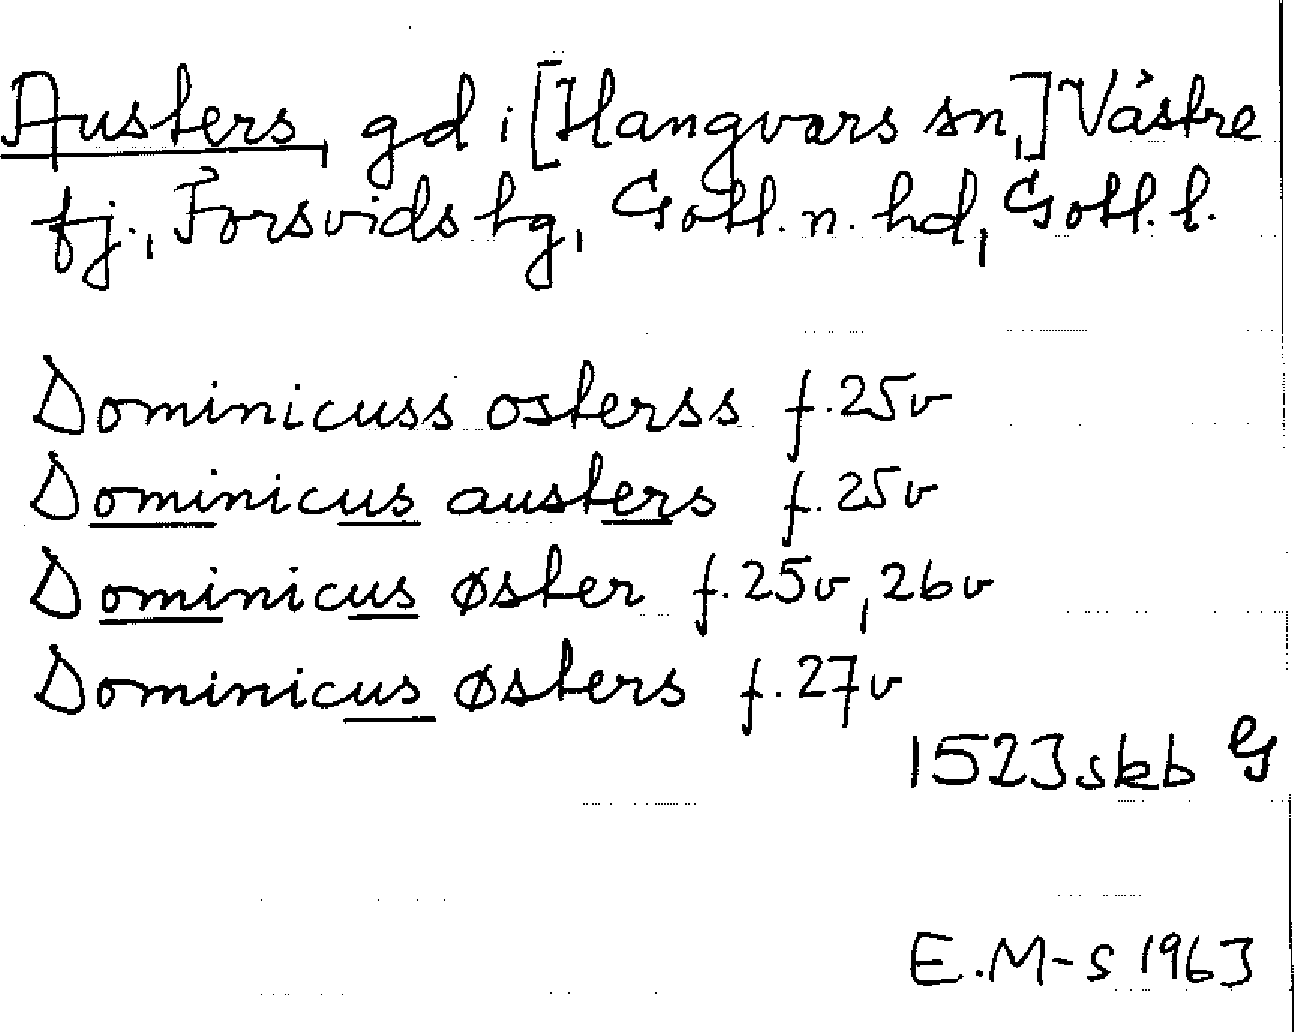 Austers, gd i [Hangvars sn,] Västre
fj., Forsvids tg, Gotl. n. hd, Gotl. l.
Dominicuss osterss f. 25v
Dominicus austers f. 25v
Dominicus øster f. 25v, 26v
Dominicus østers f. 27v
1523 skb G
E.M-s 1963